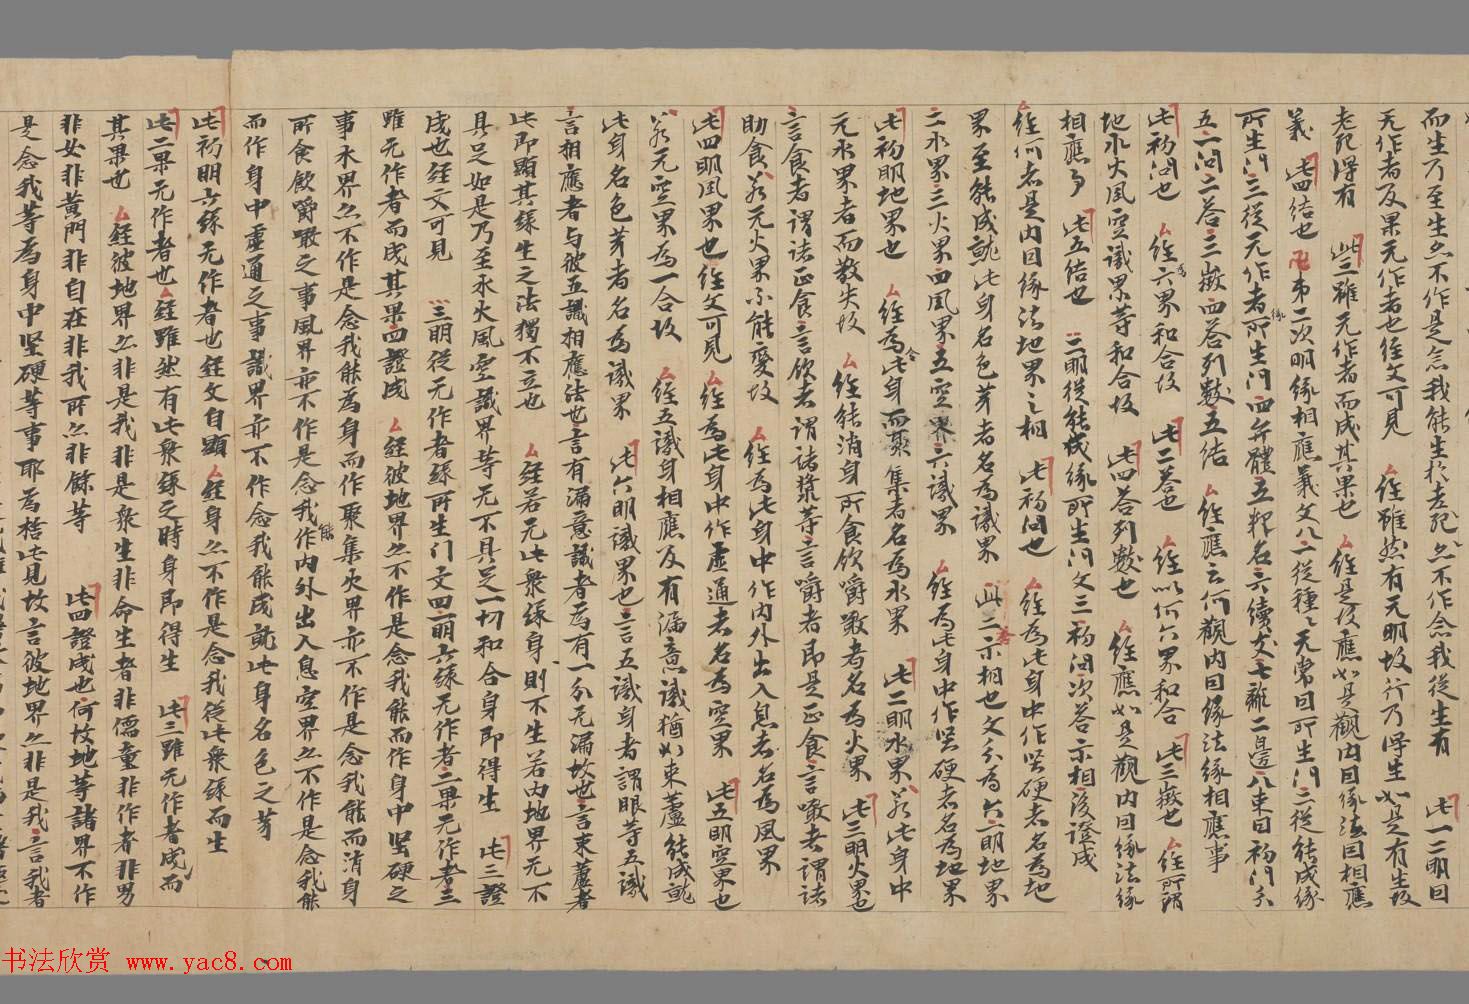 而生乃至生亦不作是念我能生於老死亦不作念我從生有 此一二明因
无作者及果无作者也經文可見 經雖然有无明故行乃得生如是有生故
老死得有 此三雖无作者而成其果也 經是故應如是觀內因緣法因相應
義 此四結也 第二次明緣相應義文八二從種種无常因所生門二從能成緣
所生門三從无作者緣所生門四弁體五釋名六續文七離二邊八束因初門分
五一問二答三徵四答列數五結 經應云何觀內因緣法緣相應事
此初問也 經為六界和合故 此二答也 經以何六界和合 此三徵也 經所謂
地水火風空識界等和合故 此四答列數也 經應如是觀內因緣法緣
相應事 此五結也 二明從能成緣所生門文三初問次答示相後證成
經何者是內因緣法地界之相 此初問也 經為此身中作堅硬者名為地
界至能成就此身名色芽者名為識界 此二示相也文分為六一明地界
二水界三火界四風界五空界六識界 經為此身中作堅硬者名為地界
此初明地界也 經為令此身而聚集者名為水界 此二明水界若此身中
元水界者而散失故 經能消身所食飲嚼噉者名為火界 此三明火界也
言食者謂諸正食言飲者謂諸漿等言嚼者即是正食言噉者謂諸
助食若无火界不能變故 經為此身中作內外出入息者名為風界
此四明風界也經文可見 經為此身中作虛通者名為空界 此五明空界也
若无空界為一合故 經五識身相應及有漏意識猶如束蘆能成就
此身名色芽者名為識界 此六明識界也言五識身者謂眼等五識
言相應者与彼五識相應法也言有漏意識者為有一分无漏故也言束蘆者
此即顯其緣生之法獨不立也 經若无此衆緣身則不生若內地界无不
具足如是乃至水火風空識界等无不具足一切和合身即得生 此三證
成也經文可見 三明從无作者緣所生门文四一明六緣无作者二果无作者三
雖无作者而成其果四證成 經彼地界亦不作是念我能而作身中堅硬之
事水界亦不作是念我能為身而作聚集火界亦不作是念我能而消身
所食飲嚼噉之事風界亦不作是念我能作內外出入息空界亦不作是念我能
而作身中虛通之事識界亦不作念我能成就此身名色之芽
此初明六緣无作者也經文自顯 經身亦不作是念我從此衆緣而生
此二果无作者也 經雖然有此衆緣之時身即得生 此三雖无作者成而
其果也 經彼地界亦非是我非是衆生非命生者非儒童非作者非男
非女非黄門非自在非我所亦非餘等 此四證成也何故地等諸界不作
是念我等為身中堅硬等事耶為捨此見故言彼地界亦非是我言我者
书法欣赏 www.yac8.com